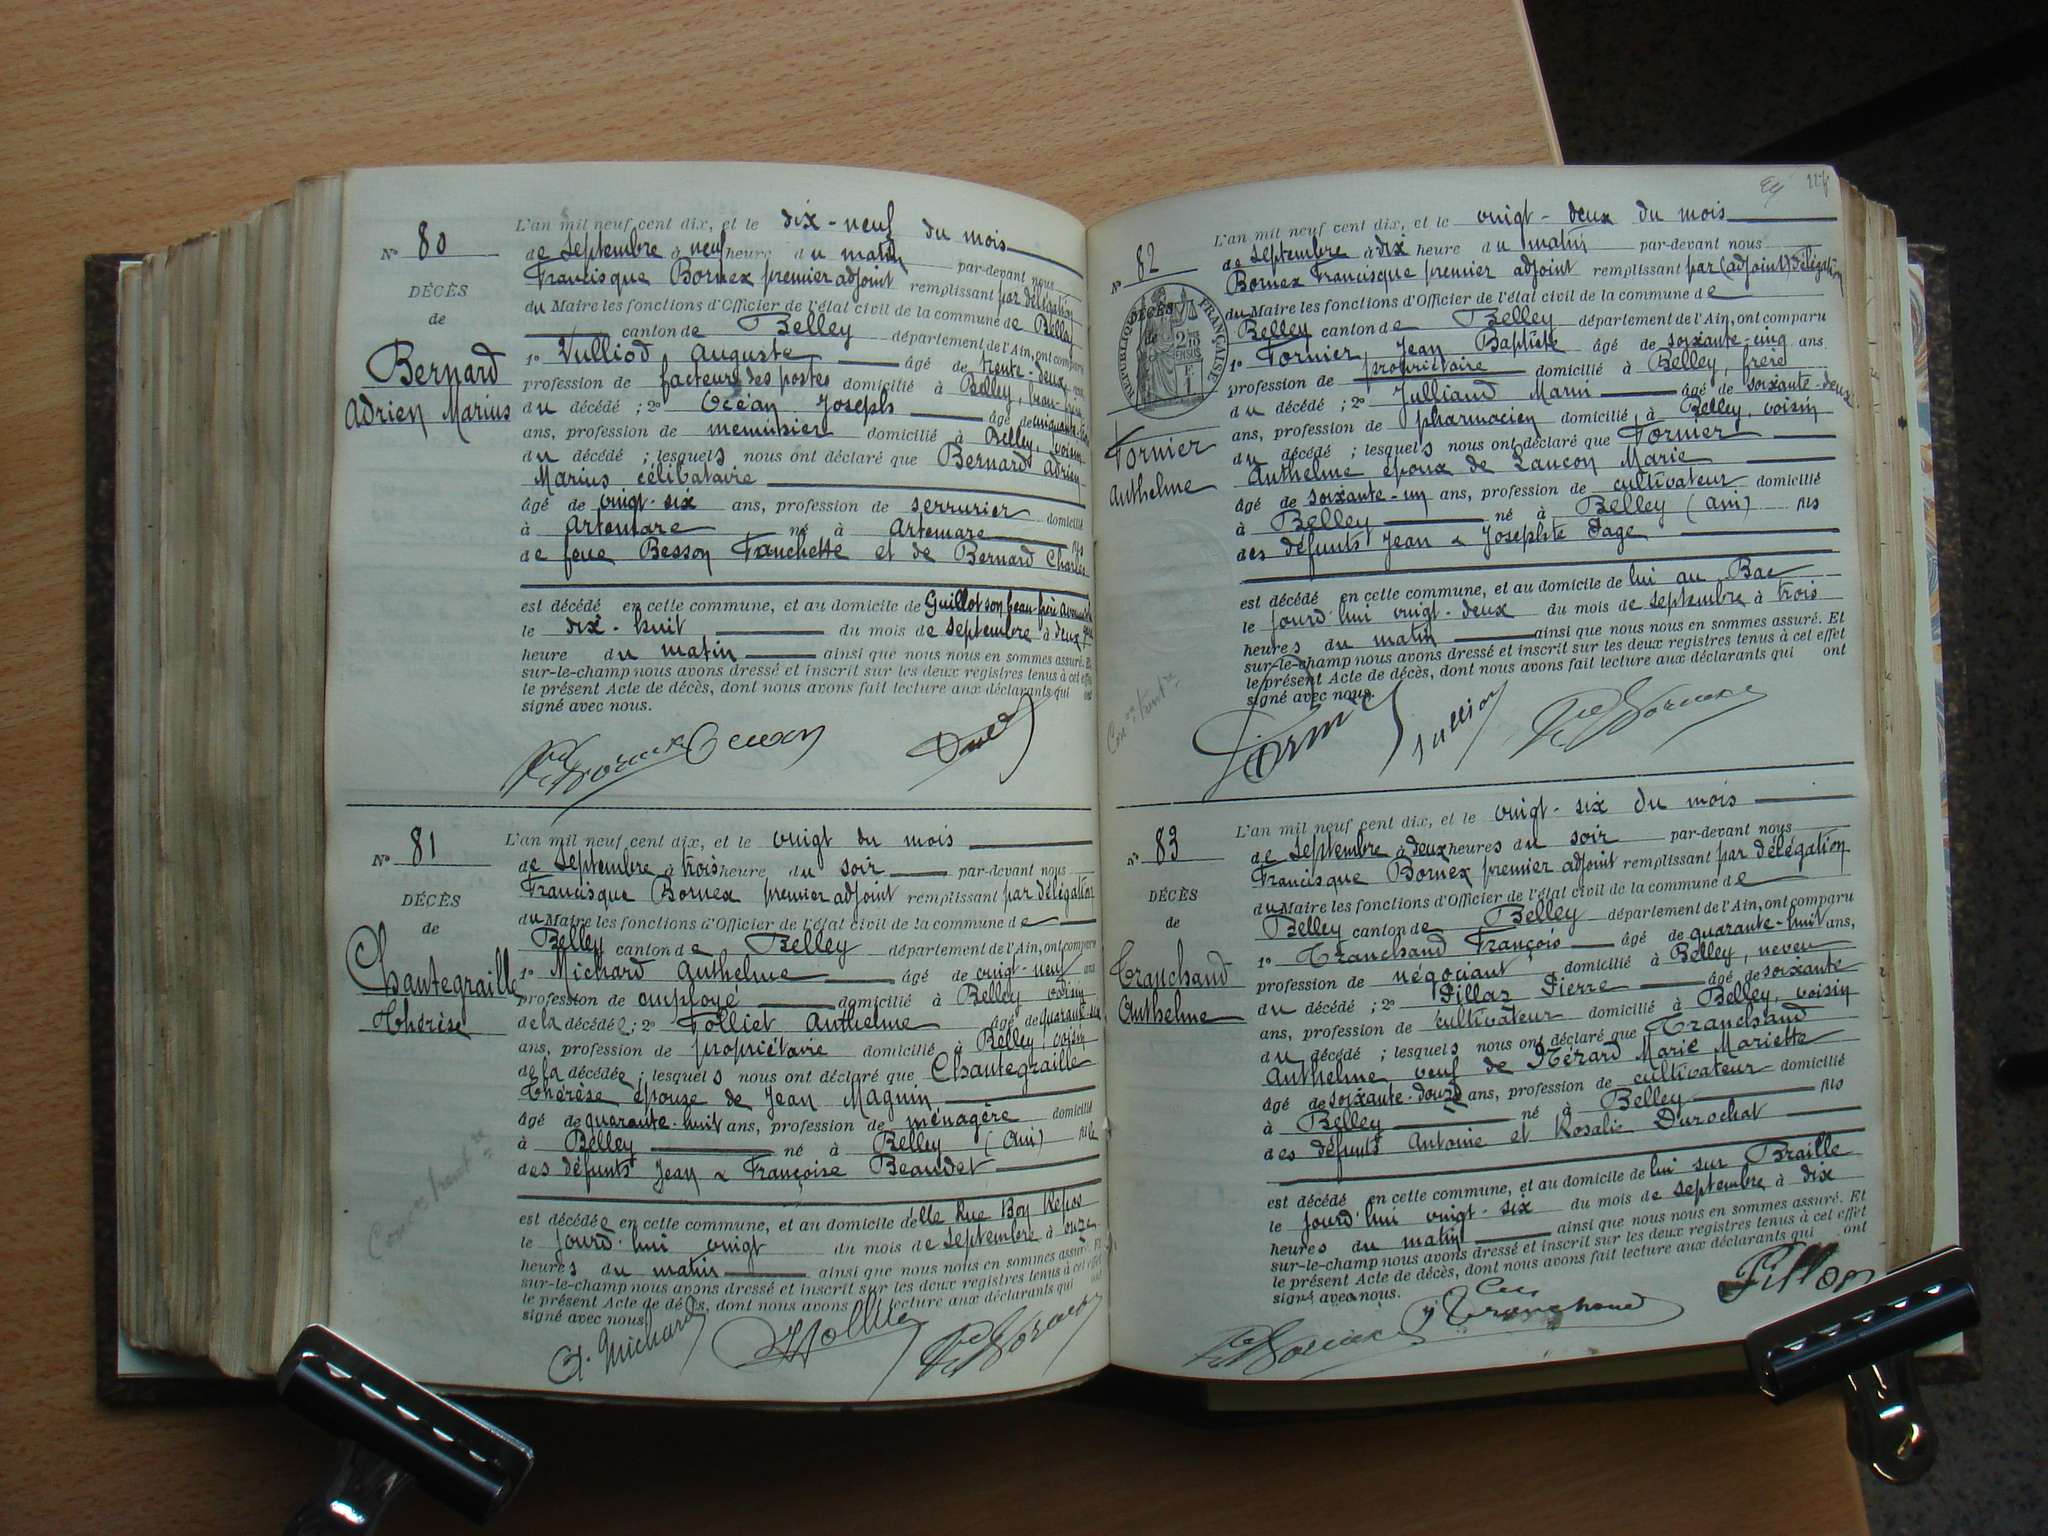 N° 80
DÉCÈS
de
Bernard
Adrien Marius
L'an mil neuf cent dix, et le dix-neuf du mois
de septembre à neuf heure du matin par-devant nous
Francisque Bornex premier adjoint remplissant par délégation
du Maire les fonctions d'Officier de l'état civil de la commune de Belley
canton de Belley département de l'Ain, ont comparu
1° Vulliod Auguste âgé de trente-deux ans
profession de facteur des postes domicilié à Belley, beau-frère
du décédé ; 2° Océan Joseph âgé de
ans, profession de menuisier domicilié à Belley, voisin
du décédé ; lesquels nous ont déclaré que Bernard Adrien
Marius célibataire
âgé de vingt-six ans, profession de serrurier domicilié
à Artemare né à Artemare fils
de feue Besson Fanchette et de Bernard Charles
est décédé en cette commune, et au domicile de Guillot son beau-frère
le dix-huit du mois de septembre à deux
heure du matin ainsi que nous nous en sommes assuré. Et
sur-le-champ nous avons dressé et inscrit sur les deux registres tenus à cet effet
le présent Acte de décès, dont nous avons fait lecture aux déclarants qui ont
signé avec nous.
N° 81
DÉCÈS
de
Chantegraille
Thérèse
L'an mil neuf cent dix, et le vingt du mois
de septembre à trois heure du soir par-devant nous
Francisque Bornex premier adjoint remplissant par délégation
du Maire les fonctions d'Officier de l'état civil de la commune de
Belley canton de Belley département de l'Ain, ont comparu
1° Michard Anthelme âgé de vingt-neuf ans
profession de employé domicilié à Belley voisin
de la décédée ; 2° Folliet Anthelme âgé de quarante-six
ans, profession de propriétaire domicilié à Belley voisin
de la décédée ; lesquels nous ont déclaré que Chantegraille
Thérèse épouse de Jean Magnin
âgé de quarante-huit ans, profession de ménagère domicilié
à Belley né à Belley (Ain) fille
des défunts Jean & Françoise Beaudet
est décédée en cette commune, et au domicile d'elle Rue Bon Repos
le jourd'hui vingt du mois de septembre à onze
heures du matin ainsi que nous nous en sommes assuré. Et
sur-le-champ nous avons dressé et inscrit sur les deux registres tenus à cet effet
le présent Acte de décès, dont nous avons fait lecture aux déclarants qui ont
signé avec nous.
A. Michard
N° 82
RÉPUBLIQUE FRANÇAISE
DÉCÈS
de
Fornier
Anthelme
L'an mil neuf cent dix, et le vingt-deux du mois
de septembre à dix heure du matin par-devant nous
Bornex Francisque premier adjoint remplissant par (adjoint) délégation
du Maire les fonctions d'Officier de l'état civil de la commune de
Belley canton de Belley département de l'Ain, ont comparu
1° Fornier Jean Baptiste âgé de soixante-cinq ans
profession de propriétaire domicilié à Belley, frère
du décédé ; 2° Julliand Marin âgé de soixante-deux
ans, profession de pharmacien domicilié à Belley, voisin
du décédé ; lesquels nous ont déclaré que Fornier
Anthelme époux de Lançon Marie
âgé de soixante-un ans, profession de cultivateur domicilié
à Belley né à Belley (Ain) fils
des défunts Jean & Josephte Page
est décédé en cette commune, et au domicile de lui au Bac
le jourd'hui vingt-deux du mois de septembre à trois
heures du matin ainsi que nous nous en sommes assuré. Et
sur-le-champ nous avons dressé et inscrit sur les deux registres tenus à cet effet
le présent Acte de décès, dont nous avons fait lecture aux déclarants qui ont
signé avec nous.
N° 83
DÉCÈS
de
Tranchand
Anthelme
L'an mil neuf cent dix, et le vingt-six du mois
de septembre à deux heures du soir par-devant nous
Francisque Bornex premier adjoint remplissant par délégation
du Maire les fonctions d'Officier de l'état civil de la commune de
Belley canton de Belley département de l'Ain, ont comparu
1° Tranchand François âgé de quarante-huit ans,
profession de négociant domicilié à Belley, neveu
du décédé ; 2° Pierre âgé de soixante
ans, profession de cultivateur domicilié à Belley, voisin
du décédé ; lesquels nous ont déclaré que Tranchand
Anthelme veuf de Marie Mariette
âgé de soixante-douze ans, profession de cultivateur domicilié
à Belley né à Belley fils
des défunts Antoine et Rosalie Durochat
est décédé en cette commune, et au domicile de lui sur Braille
le jourd'hui vingt-six du mois de septembre à dix
heures du matin ainsi que nous nous en sommes assuré. Et
sur-le-champ nous avons dressé et inscrit sur les deux registres tenus à cet effet
le présent Acte de décès, dont nous avons fait lecture aux déclarants qui ont
signé avec nous.
Tranchand